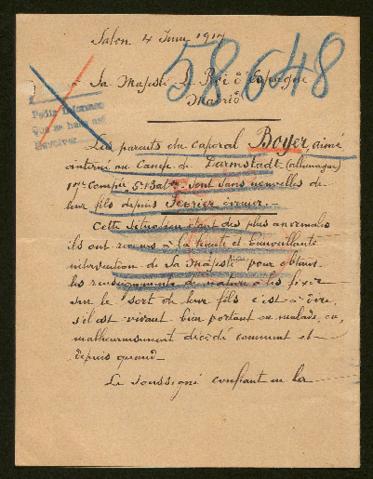 Salon 4 Juin 1917
58648
Sa Majesté Le Roi d'Espagne
Madrid
Les parents du caporal Boyer, aimé
interné au Camp de Darmstadt (Allemagne)
sont sans nouvelles de
leur fils depuis Fevrier dernier.
Cette situation étant des plus anormales
ils ont recours à la haute et bienveillante
intervention de Sa Majesté pour obtenir
les renseignements de nature à les fixer
sur le sort de leur fils c'est à dire
s'il est vivant bien portant ou malade, ou,
malheureusement décédé comment et
depuis quand.
Le soussigné confiant en la